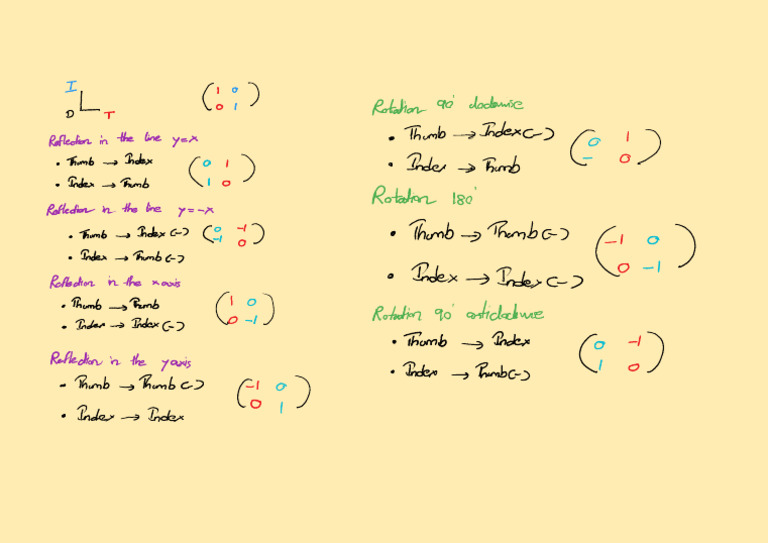 I
D T
( 1 0
0 1 )
Reflection in the line y=x
• Thumb → Index
• Index → Thumb
( 0 1
1 0 )
Reflection in the line y=-x
• Thumb → Index (-)
• Index → Thumb (-)
( 0 -1
-1 0 )
Reflection in the x axis
• Thumb → Thumb
• Index → Index (-)
( 1 0
0 -1 )
Reflection in the y axis
• Thumb → Thumb (-)
• Index → Index
( -1 0
0 1 )
Rotation 90° clockwise
• Thumb → Index (-)
• Index → Thumb
( 0 1
- 0 )
Rotation 180°
• Thumb → Thumb (-)
• Index → Index (-)
( -1 0
0 -1 )
Rotation 90° anticlockwise
• Thumb → Index
• Index → Thumb (-)
( 0 -1
1 0 )